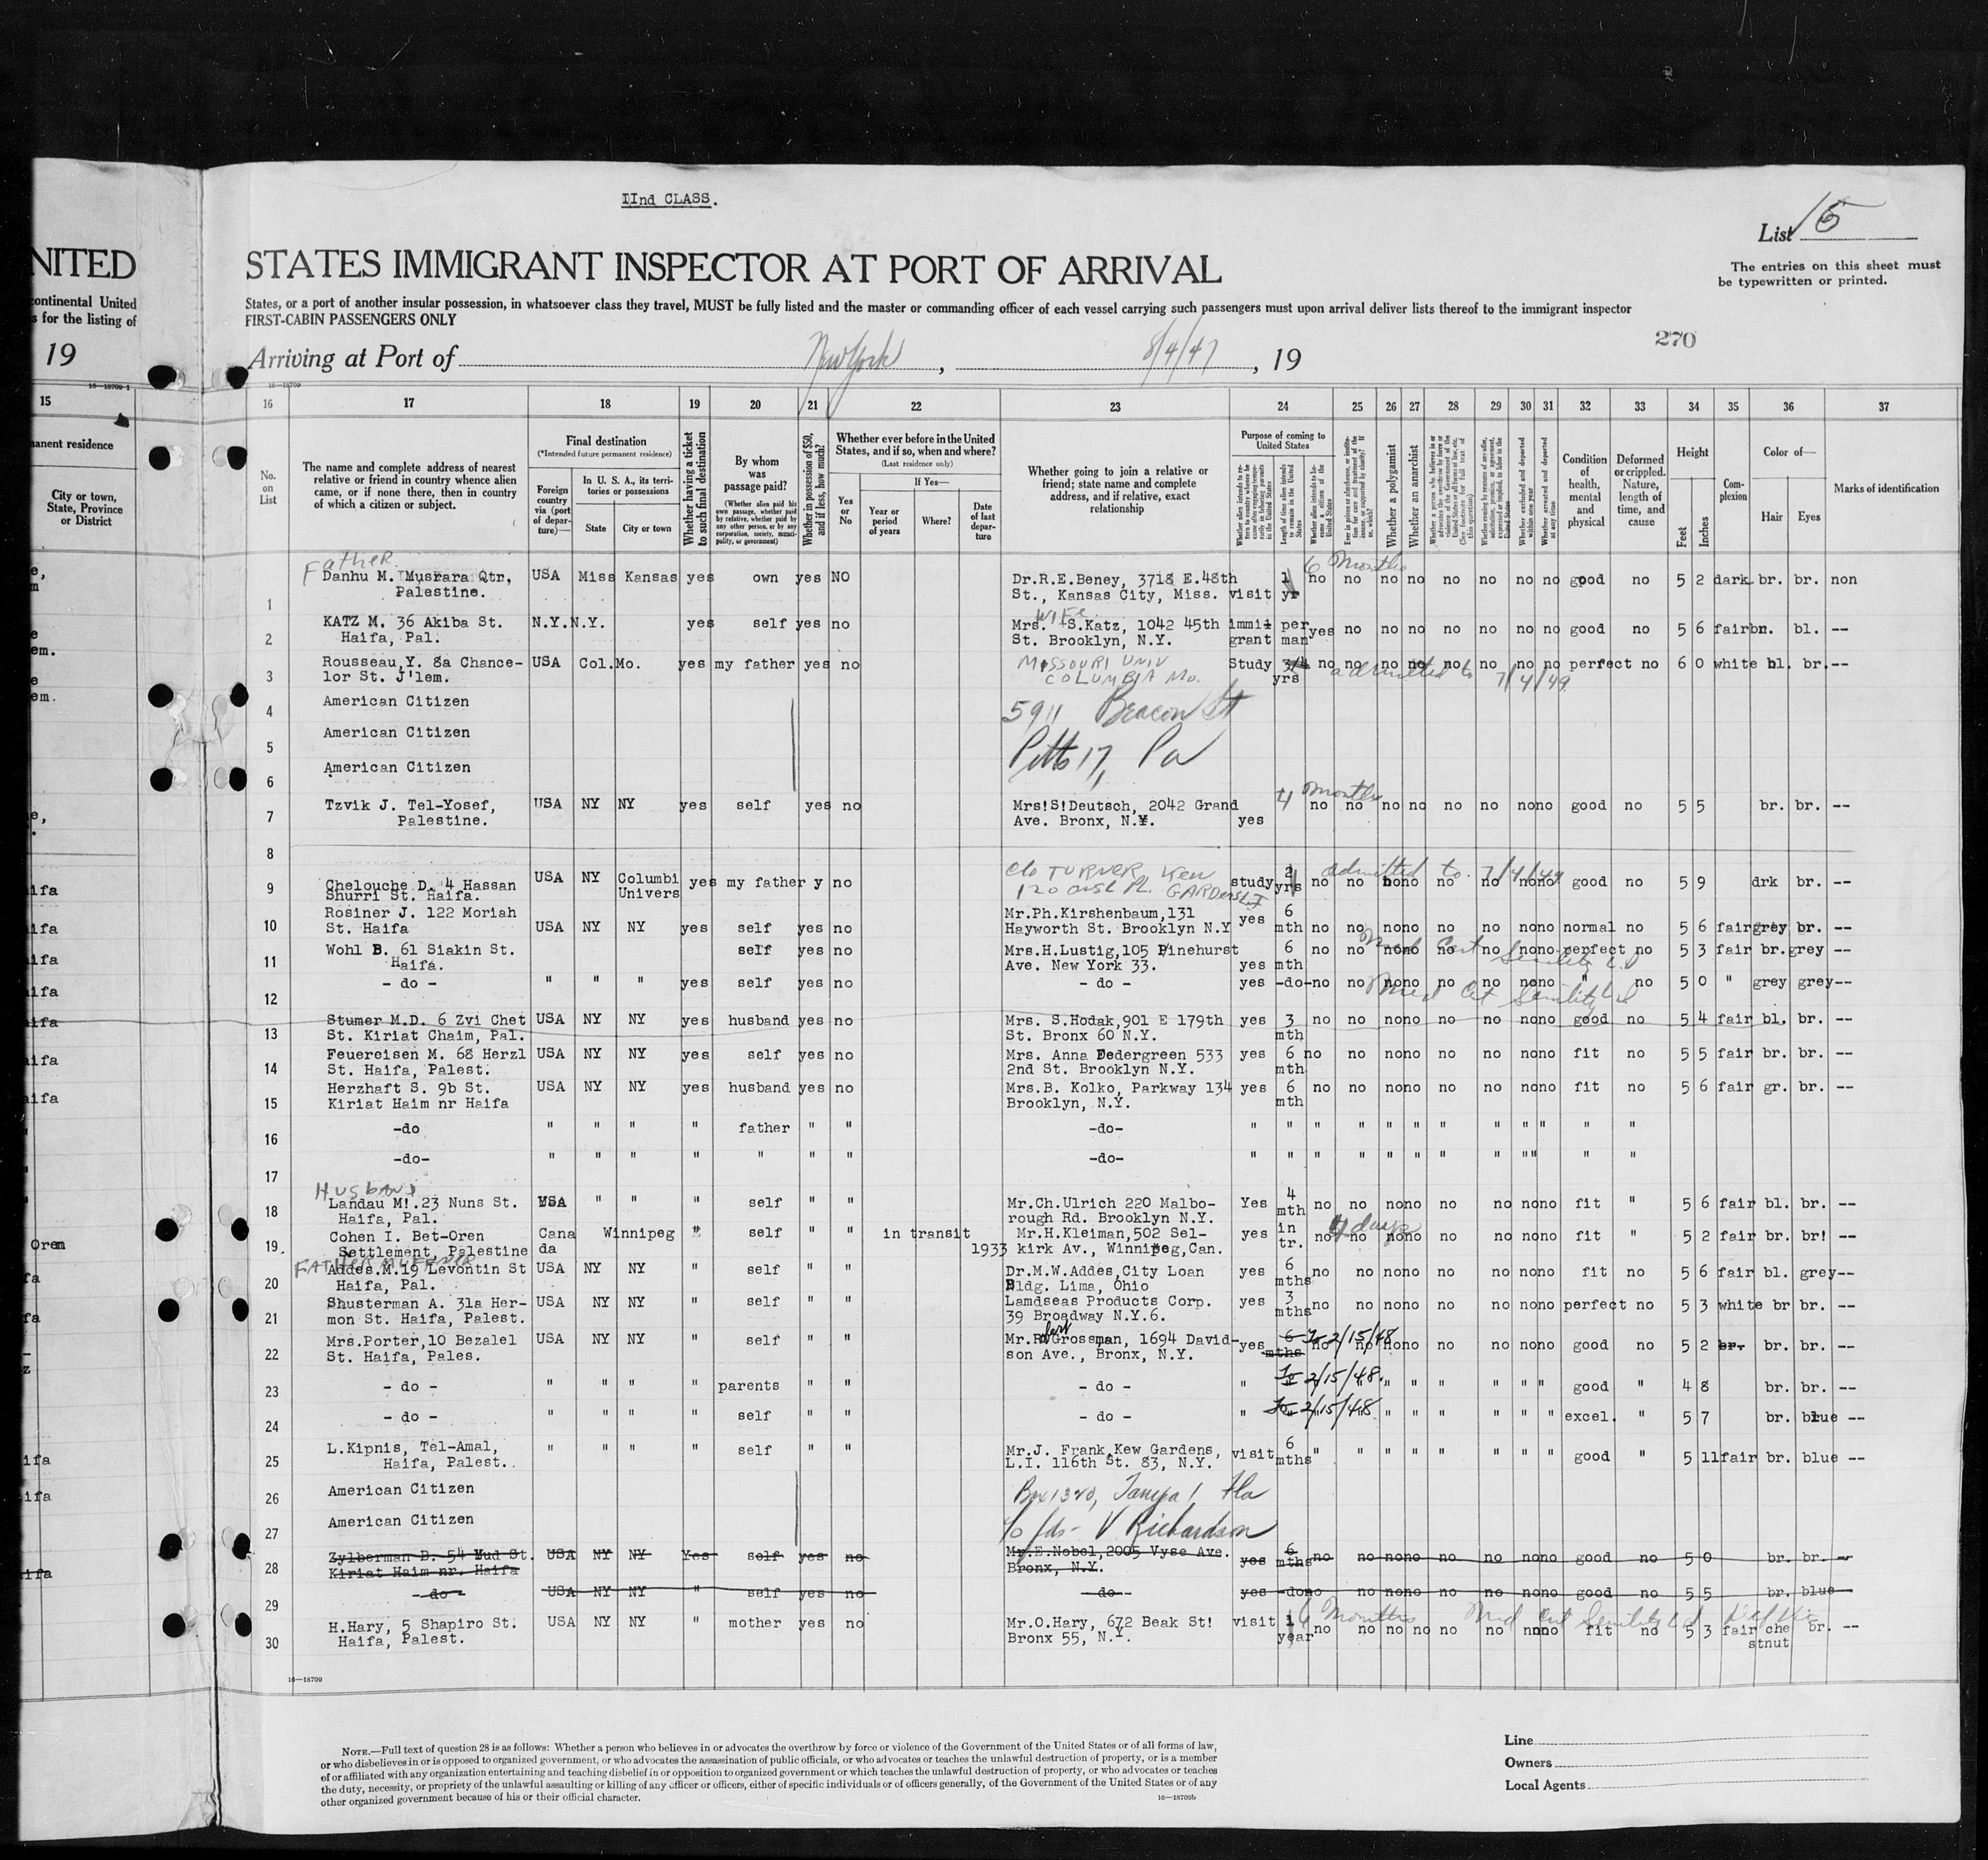 IInd CLASS.
List 15
NITED
STATES IMMIGRANT INSPECTOR AT PORT OF ARRIVAL
The entries on this sheet must
be typewritten or printed.
continental United
s for the listing of
States, or a port of another insular possession, in whatsoever class they travel, MUST be fully listed and the master or commanding officer of each vessel carrying such passengers must upon arrival deliver lists thereof to the immigrant inspector
FIRST-CABIN PASSENGERS ONLY
270
19
Arriving at Port of New York, 8/4/47, 19
16—18709
15 16 17 18 19 20 21 22 23 24 25 26 27 28 29 30 31 32 33 34 35 36 37
manent residence
City or town,
State, Province
or District
No.
on
List
The name and complete address of nearest
relative or friend in country whence alien
came, or if none there, then in country
of which a citizen or subject.
Final destination
(*Intended future permanent residence)
Foreign
country
via (port
of depar-
ture)—
In U. S. A., its terri-
tories or possessions
State City or town
Whether having a ticket
to such final destination
By whom
was
passage paid?
(Whether alien paid his
own passage, whether paid
by relative, whether paid by
any other person, or by any
corporation, society, munici-
pality, or government)
Whether in possession of $50,
and if less, how much?
Whether ever before in the United
States, and if so, when and where?
(Last residence only)
Yes
or
No
If Yes—
Year or
period
of years
Where?
Date
of last
depar-
ture
Whether going to join a relative or
friend; state name and complete
address, and if relative, exact
relationship
Purpose of coming to
United States
Length of time alien intends
to remain in the United
States
Whether a polygamist
Whether an anarchist
Whether excluded and deported
within one year
Whether arrested and deported
at any time
Condition
of
health,
mental
and
physical
Deformed
or crippled.
Nature,
length of
time, and
cause
Height
Feet Inches
Com-
plexion
Color of—
Hair Eyes
Marks of identification
Father 6 Months
1 Danhu M. Musrara Qtr, USA Miss Kansas yes own yes NO Dr.R.E.Beney, 3718 E.48th 1 no no no no no no no no good no 5 2 dark br. br. non
Palestine. St., Kansas City, Miss. visit yr
Wife
2 KATZ M. 36 Akiba St. N.Y.N.Y. yes self yes no Mrs. S.Katz, 1042 45th immi per yes no no no no no no no good no 5 6 fair bn. bl. --
Haifa, Pal. St. Brooklyn, N.Y. grant man
3 Rousseau,Y. 8a Chance- USA Col.Mo. yes my father yes no MISSOURI UNIV Study 3/4 no no no no no no no no perfect no 6 0 white bl. br.--
lor St. J'lem. COLUMBIA Mo. yrs admitted to 7/4/49
4 American Citizen 5911 Beacon St
5 American Citizen Pitts 17, Pa
6 American Citizen
4 Months
7 Tzvik J. Tel-Yosef, USA NY NY yes self yes no Mrs!S!Deutsch, 2042 Grand no no no no no no no no good no 5 5 br. br. --
Palestine. Ave. Bronx, N.Y. yes
8
9 Chelouche D. 4 Hassan USA NY Columbi yes my father y no c/o TURNER KEW study 2 no no no no no no no no good no 5 9 drk br. --
Shurri St. Haifa. Univers GARDENS yrs admitted to 7/4/49
10 Rosiner J. 122 Moriah Mr.Ph.Kirshenbaum,131 6
St. Haifa USA NY NY yes self yes no Hayworth St. Brooklyn N.Y yes mth no no no no no no no no normal no 5 6 fair grey br. --
11 Wohl B. 61 Siakin St. self yes no Mrs.H.Lustig,105 Pinehurst 6 no no no no no no no no perfect no 5 3 fair br.grey --
Haifa. Ave. New York 33. yes mth Med Cert Senility
12 - do - " " " yes self yes no - do - yes -do- no no no no no no no no " no 5 0 " grey grey--
Med Cert Senility
13 Stumer M.D. 6 Zvi Chet USA NY NY yes husband yes no Mrs. S.Hodak,901 E 179th yes 3 no no no no no no no no good no 5 4 fair bl. br. --
St. Kiriat Chaim, Pal. St. Bronx 60 N.Y. mth
14 Feuereisen M. 68 Herzl USA NY NY yes self yes no Mrs. Anna Federgreen 533 yes 6 no no no no no no no no fit no 5 5 fair br. br. --
St. Haifa, Palest. 2nd St. Brooklyn N.Y. mth
15 Herzhaft S. 9b St. USA NY NY yes husband yes no Mrs.B. Kolko, Parkway 134 yes 6 no no no no no no no no fit no 5 6 fair gr. br. --
Kiriat Haim nr Haifa Brooklyn, N.Y. mth
16 -do " " " " father " " -do- " " " " " " " " " " " "
17 -do- " " " " " " " -do- " " " " " " " " " " " "
Husband
18 Landau M!.23 Nuns St. USA " " " self " " Mr.Ch.Ulrich 220 Malbo- Yes 4 no no no no no no no no fit " 5 6 fair bl. br. --
Haifa, Pal. rough Rd. Brooklyn N.Y. mth
19. Cohen I. Bet-Oren Cana Winnipeg " self " " in transit Mr.H.Kleiman,502 Sel- yes in no no no no no no no no fit " 5 2 fair br. br! --
Settlement, Palestine da 1933 kirk Av., Winnipeg,Can. tr. days
FATHER
20 Addes.M.19 Levontin St USA NY NY " self " " Dr.M.W.Addes,City Loan yes 6 no no no no no no no no fit no 5 6 fair bl. grey--
Haifa, Pal. Bldg. Lima, Ohio mths
21 Shusterman A. 31a Her- USA NY NY " self " " Lamdseas Products Corp. yes 3 no no no no no no no no perfect no 5 3 white br br. --
mon St. Haifa, Palest. 39 Broadway N.Y.6. mths
22 Mrs.Porter,10 Bezalel USA NY NY " self " " Mr.Robert Grossman, 1694 David- yes 6 To 2/15/48 no no no no no no no no good no 5 2 br. br. br. --
St. Haifa, Pales. son Ave., Bronx, N.Y. mths
23 - do - " " " " parents " " - do - " To 2/15/48 " " " " " " good " 4 8 br. br. --
24 - do - " " " " self " " - do - " To 2/15/48 " " " " " " excel. " 5 7 br. blue --
25 L.Kipnis, Tel-Amal, " " " " self " " Mr.J. Frank,Kew Gardens, visit 6 " " " " " " " " good " 5 11 fair br. blue --
Haifa, Palest.. L.I. 116th St. 83, N.Y. mths
26 American Citizen Box 1320, Tampa 1, Fla
27 American Citizen V Richardson
28 Zylberman B. 54 Hud St. USA NY NY Yes self yes no Mr.E.Nobel,2005 Vyse Ave. yes 6 no no no no no no no no good no 5 0 br. br. --
Kiriat Haim nr. Haifa Bronx, N.Y. mths
29 -do- USA NY NY " self yes no -do- yes -do no no no no no no no no good no 5 5 br. blue
30 H.Hary, 5 Shapiro St. USA NY NY " mother yes no Mr.O.Hary, 672 Beak St! visit 1 no no no no no no no no fit no 5 3 fair che br. --
Haifa, Palest. Bronx 55, N.Y. year 6 Months Med Cert Senility stnut
16—18709
NOTE.—Full text of question 28 is as follows: Whether a person who believes in or advocates the overthrow by force or violence of the Government of the United States or of all forms of law,
or who disbelieves in or is opposed to organized government, or who advocates the assassination of public officials, or who advocates or teaches the unlawful destruction of property, or is a member
of or affiliated with any organization entertaining and teaching disbelief in or opposition to organized government or which teaches the unlawful destruction of property, or who advocates or teaches
the duty, necessity, or propriety of the unlawful assaulting or killing of any officer or officers, either of specific individuals or of officers generally, of the Government of the United States or of any
other organized government because of his or their official character.
16—18709b
Line
Owners
Local Agents